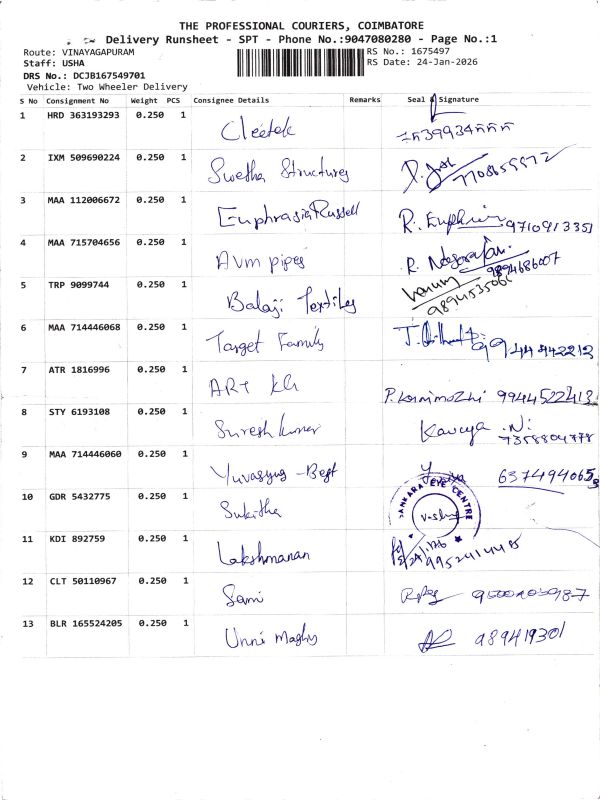 THE PROFESSIONAL COURIERS, COIMBATORE
Delivery Runsheet - SPT - Phone No.:9047080280 - Page No.:1
Route: VINAYAGAPURAM RS No.: 1675497
Staff: USHA RS Date: 24-Jan-2026
DRS No.: DCJB167549701
Vehicle: Two Wheeler Delivery
S No Consignment No Weight PCS Consignee Details Remarks Seal & Signature
1 HRD 363193293 0.250 1 Cleetek
2 IXM 509690224 0.250 1 Swetha Structures
3 MAA 112006672 0.250 1 Euphrasia Russell R. 9710913351
4 MAA 715704656 0.250 1 Avm pipes R. 9894686007
5 TRP 9099744 0.250 1 Balaji Textiles
6 MAA 714446068 0.250 1 Target Family
7 ATR 1816996 0.250 1 ART P. Kanimozhi 9944522413
8 STY 6193108 0.250 1 Suresh Kumar Kavya .N:
9 MAA 714446060 0.250 1 6374940653
10 GDR 5432775 0.250 1 Sukitha
SANKARA EYE CENTRE
11 KDI 892759 0.250 1 Lakshmanan
12 CLT 50110967 0.250 1 Sami
13 BLR 165524205 0.250 1 Unni